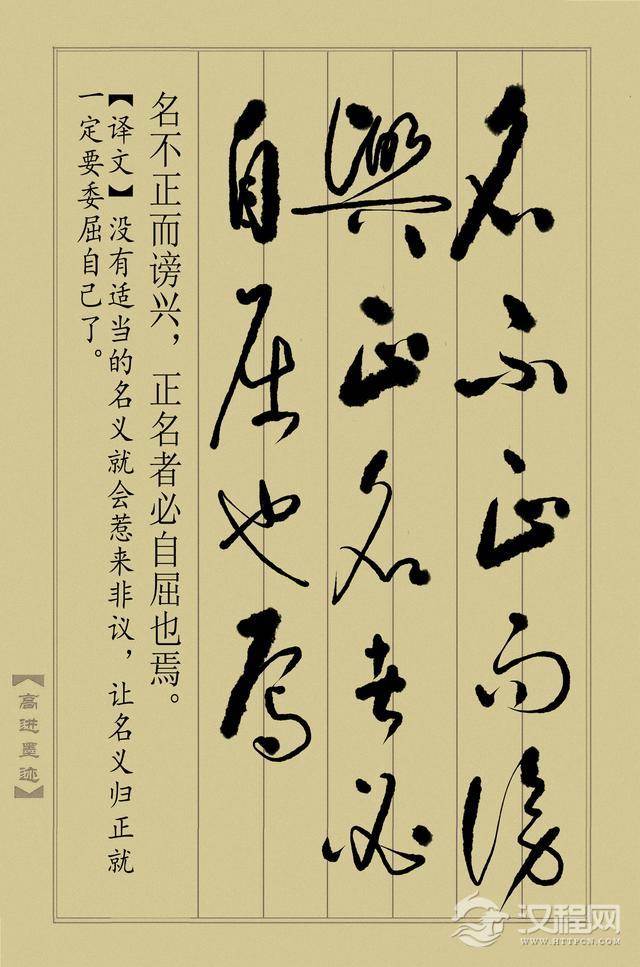 名不正而謗
興正名者必
自屈也焉
名不正而谤兴，正名者必自屈也焉。
【译文】没有适当的名义就会惹来非议，让名义归正就
一定要委屈自己了。
【高进墨迹】
汉程网
WWW.HTTPCN.COM